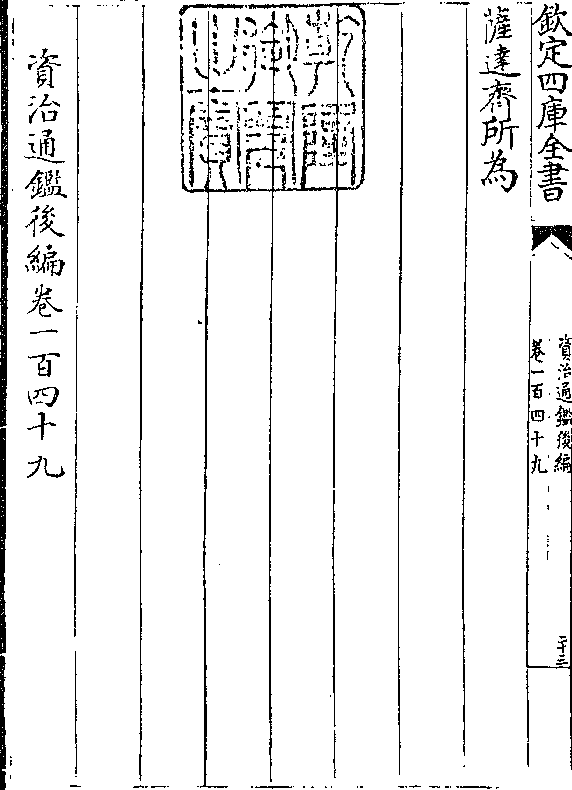 欽定四庫全書
資治通鑑後編
卷一百四十九
二十三
薩達齊所為
資治通鑑後編卷一百四十九